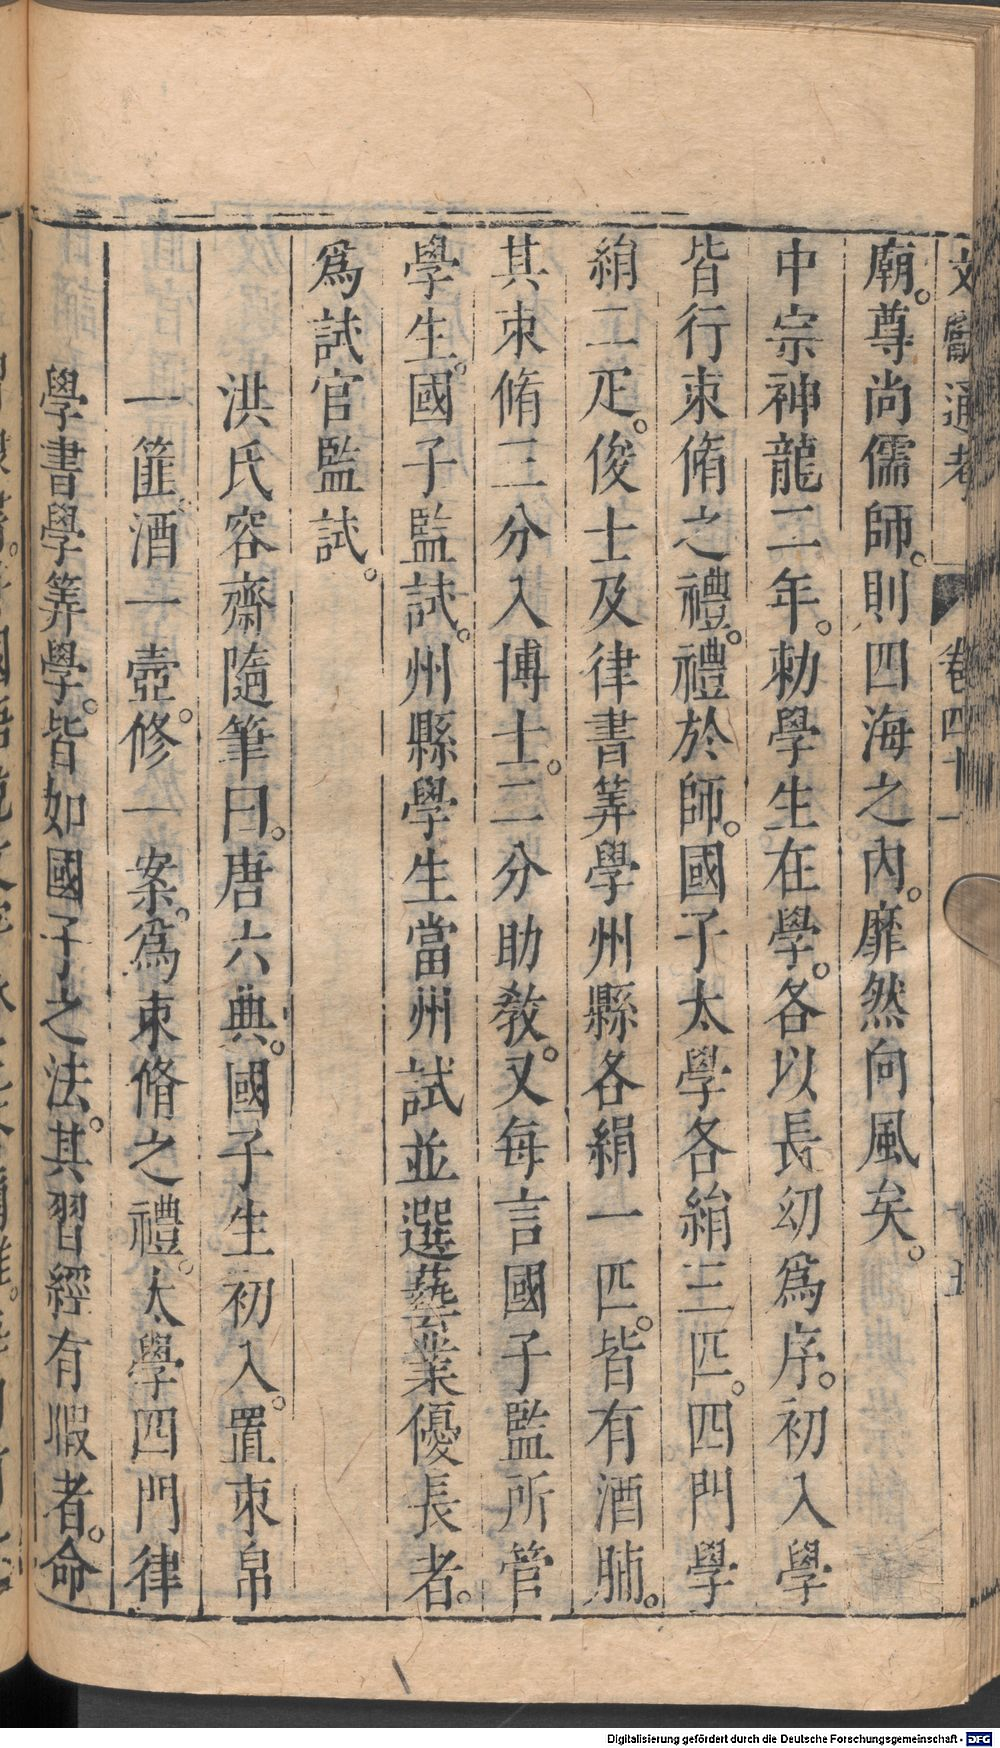 文獻通考 卷四十一
廟。尊尚儒師。則四海之內。靡然向風矣。
中宗神龍二年。勅學生在學。各以長幼爲序。初入學
皆行束脩之禮。禮於師。國子太學各絹三匹。四門學
絹二疋。俊士及律書筭學州縣各絹一匹。皆有酒脯。
其束脩三分入博士。二分助教。又每言國子監所管
學生。國子監試。州縣學生當州試並選藝業優長者。
爲試官監試。
洪氏容齋隨筆曰。唐六典。國子生初入。置束帛
一篚。酒一壺。修一案。爲束脩之禮。太學四門律
學書學筭學。皆如國子之法。其習經有暇者。命
Digitalisierung gefördert durch die Deutsche Forschungsgemeinschaft - DFG